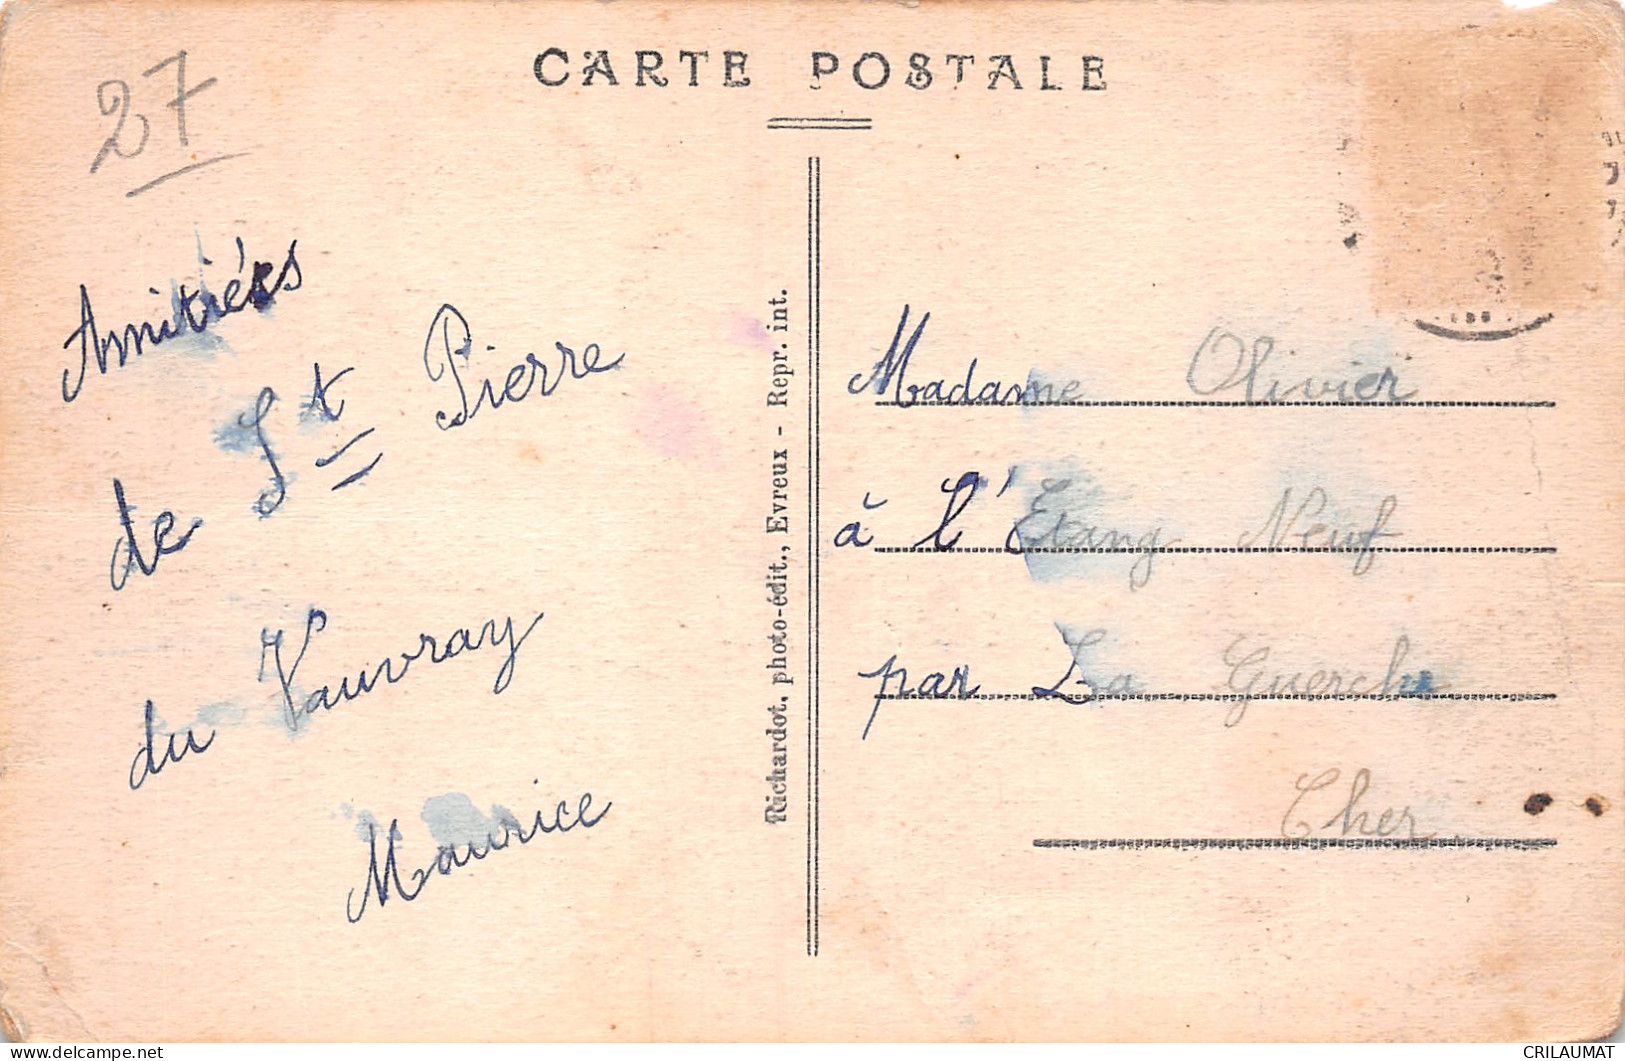 CARTE POSTALE
27
Amitiées
de St Pierre
du Vauvray
Maurice
Richardot, photo-édit., Evreux - Repr. int.
Madame Olivier
à l'Etang Neuf
par La Guerche
Cher.
CRILAUMAT